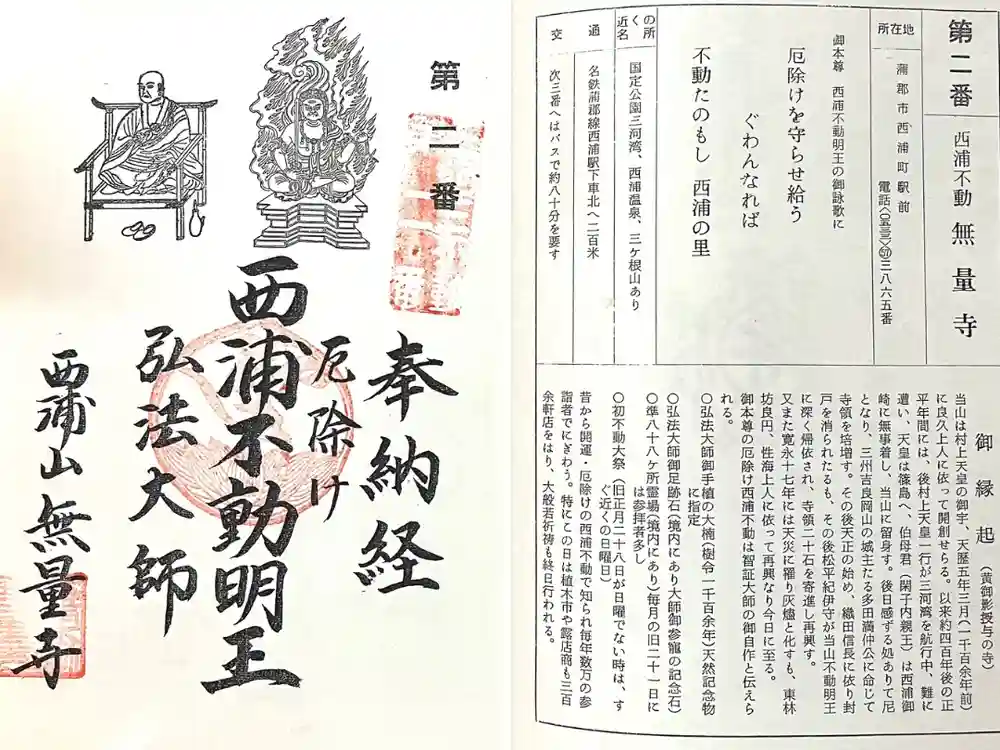 第二番
西浦不動 無量寺
所在地
蒲郡市西浦町駅前
電話〈〇五三三〉㊼三八六五番
御本尊 西浦不動明王の御詠歌に
厄除けを守らせ給う
ぐわんなれば
不動たのもし 西浦の里
近くの名所
国定公園三河湾、西浦温泉、三ケ根山あり
交通
名鉄蒲郡線西浦駅下車北へ二百米
次三番へはバスで約八十分を要す
御縁起 (黄御影授与の寺)
当山は村上天皇の御宇、天歴五年三月(一千百余年前)
に良久上人に依って開創せらる。以来約四百年後の正
平年間には、後村上天皇一行が三河湾を航行中、難に
遭い、天皇は篠島へ、伯母君(閑子内親王)は西浦御
崎に無事着し、当山に留身す。後日感ずる処ありて尼
となり、三州吉良岡山の城主たる多田満仲公に命じて
寺領を培増す。その後天正の始め、織田信長に依り封
戸を消られたるも、その後松平紀伊守が当山不動明王
に深く帰依され、寺領二十石を寄進し再興す。
又また寛永十七年には天災に罹り灰燼と化すも、東林
坊良円、性海上人に依って再興なり今日に至る。
御本尊の厄除け西浦不動は智証大師の御自作と伝えら
れる。
〇弘法大師御手植の大楠(樹令一千百余年)天然記念物
に指定
〇弘法大師御足跡石(境内にあり大師御参寵の記念石)
〇準八十八ヶ所霊場(境内にあり)毎月の旧二十一日に
は参拝者多し
〇初不動大祭(旧正月二十八日が日曜でない時は、す
ぐ近くの日曜日)
昔から開運・厄除けの西浦不動で知られ毎年数万の参
詣者でにぎわう。特にこの日は植木市や露店商も三百
余軒店をはり、大般若祈祷も終日行われる。
第二番
奉納経
厄除け
西浦不動明王
弘法大師
西浦山無量寺